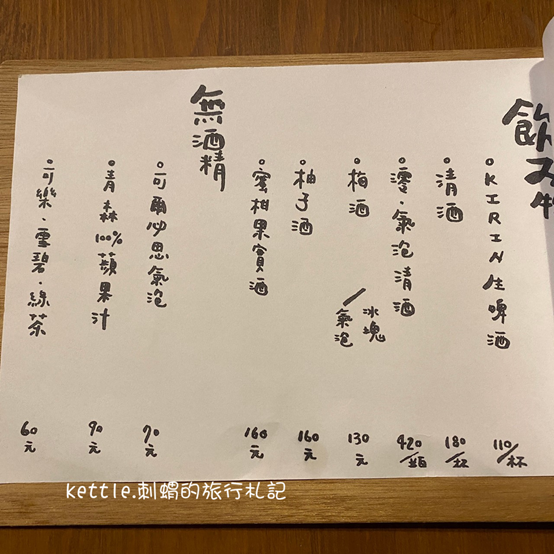 飲み物
KIRIN生啤酒
110/杯
清酒
180/杯
澪・氣泡清酒
420/瓶
梅酒
冰塊/氣泡
130元
柚子酒
160元
蜜柑果實酒
160元
無酒精
可爾必思氣泡
70元
青森100%蘋果汁
90元
可樂・雪碧・綠茶
60元
kettle.刺蝟的旅行札記